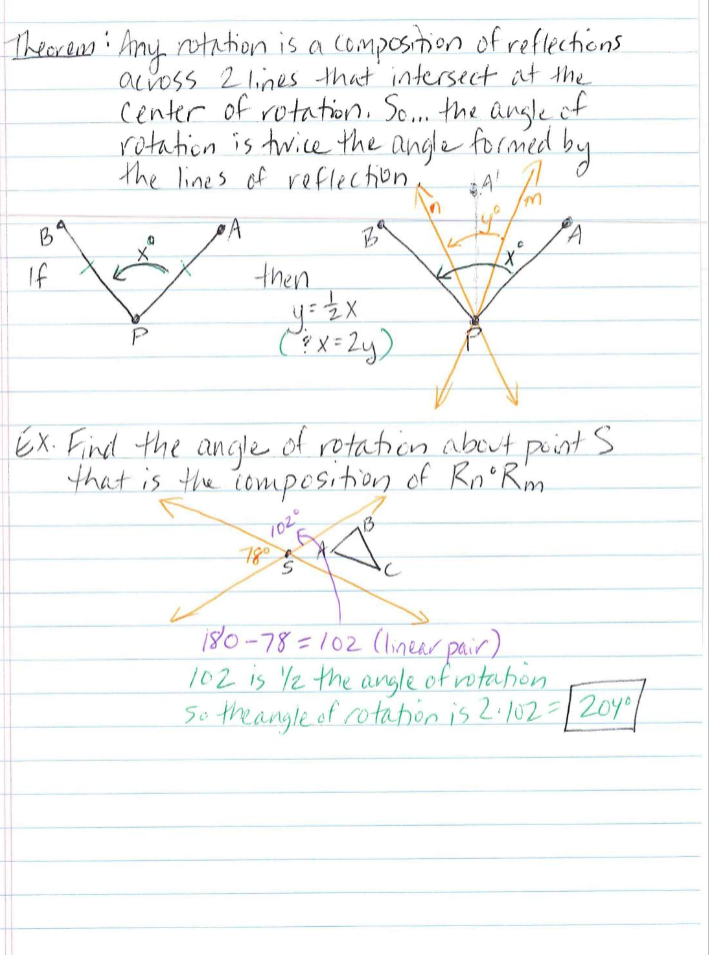 Theorem: Any rotation is a composition of reflections
across 2 lines that intersect at the
center of rotation. So... the angle of
rotation is twice the angle formed by
the lines of reflection.
A'
n
m
y°
B
x°
A
B
x°
A
If
then
y = 1/2 x
(& x = 2y)
P
P
EX. Find the angle of rotation about point S
that is the composition of Rn∘Rm
102°
B
78°
A
S
C
180 - 78 = 102 (linear pair)
102 is 1/2 the angle of rotation
so the angle of rotation is 2·102 = 204°